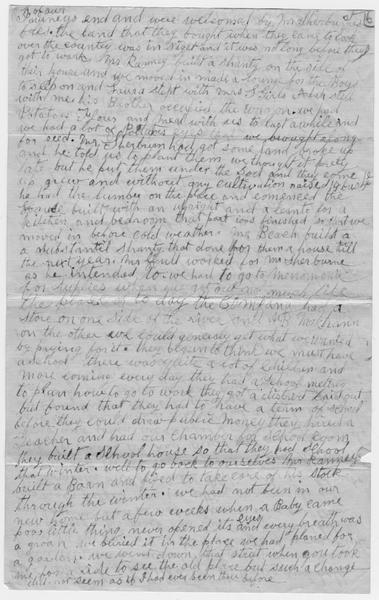 Journeys end and were welcomed by Mr Sherburnes
the land that they bought when they came to look
over the country was in sight and it was no long before they
got to work. Mr Ranney built a shanty on the side of
their house and we moved in made a lounge for the Boys
to sleep on and Laura slept with Mrs
with me his Brother occupied the wagon we had
Potatoes Flour and meal with us to last awhile and
we had a lot of Potatoes eyes cut we brought along
for seed. Mr Sherburn had got some land broke up
and he told us to plant them, we thought it prety
late but he put them under the Sod and they come
up grew and without any cultivation raised
he had the lumber on the place and comenced the
house built with an upright and a leanto for a
kitchen and bedroom that part was finished so that we
moved in before cold weather. Mr Beach build a
a substantial shanty that done for them a house till
the next year. Mr worked for Mr Sherburne
as he intended to. we had to go to Menomonie
for supplies when out of food not much like
the place of to day the Company had a
store on one side of the river and
on the other we could generaly get what we wanted
by paying for it. they begun to think we must have
a school there was quite a lot of Children and
more coming every day they had a school meeting
to plan how to go to work they got a district laid out
but found that they had to have a term of school
before they could draw public money they hired a
Teacher and had our chamber for school room
they built a school house so that they had school
that Winter. well to go back to ourselves Mr Ranney
built a Barn and fixed to take care of his stock
through the winter. we had not been in our
new home but a few weeks when a Baby came
poor little thing never opened its eyes every breath was
a groan we buried it in the place we had planed for
a garden. we went down that street when you took
me for a ride to see the old place but such a change
did not seem as if I had ever been there before